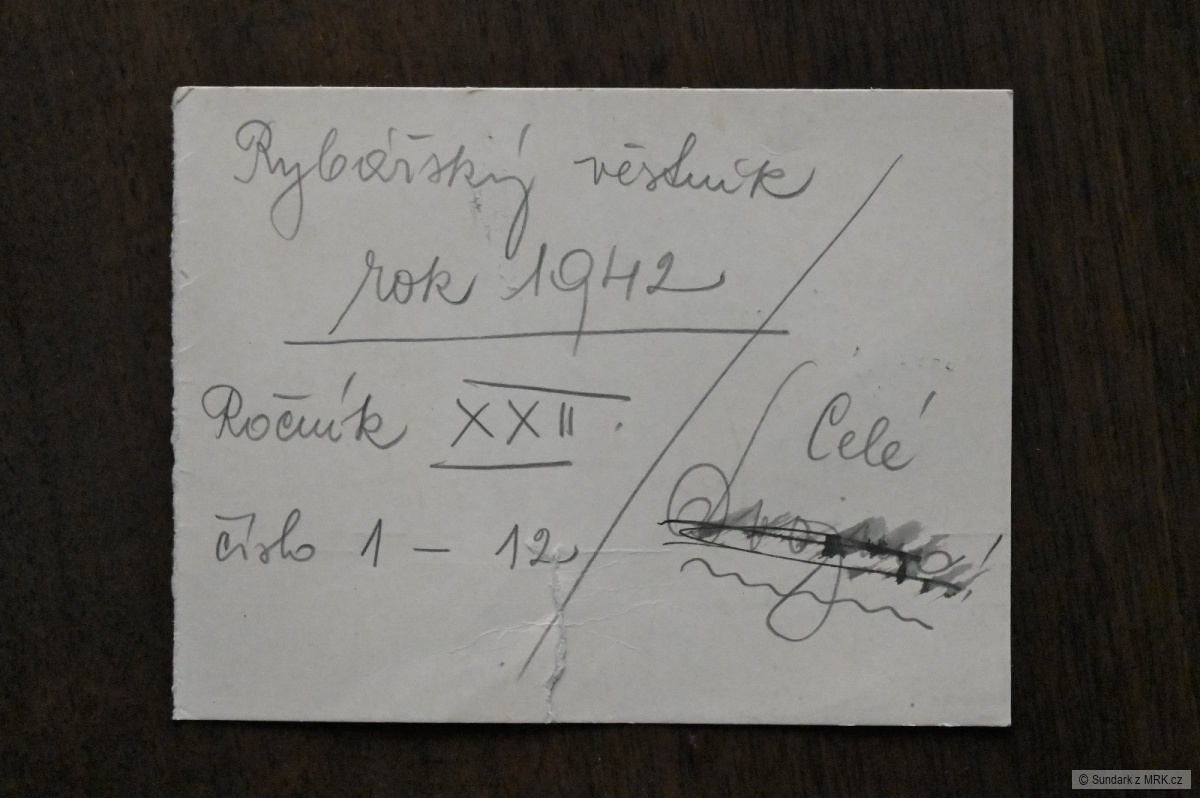 Rybářský věstník
rok 1942
Ročník XXII.
číslo 1 – 12
Celé
© Sundark z MRK.cz